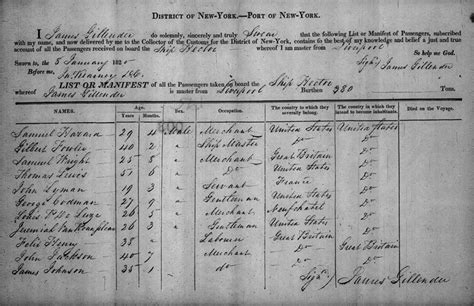 DISTRICT OF NEW-YORK.—PORT OF NEW-YORK.
I James Gillender do solemnly, sincerely and truly Swear that the following List or Manifest of Passengers, subscribed
with my name, and now delivered by me to the Collector of the Customs for the District of New-York, contains to the best of my knowledge and belief a just and true
account of all the Passengers received on board the Ship Hector whereof I am master from Liverpool
Sworn to 5 January 182 So help me God.
Before me, Signd/ James Gillender
LIST OR MANIFEST of all the Passengers taken on board the Ship Hector
whereof James Gillender is master from Liverpool Burthen 380 Tons.
NAMES. AGE. SEX. Occupation. The country to which they severally belong. The country of which they intend to become inhabitants. Died on the Voyage.
Samuel 29 4 Male Merchant United States United States
Gilbert Fowler 40 2 " Ship Master Do Do
Samuel Wright 25 8 " Merchant Great Britain Do
Thomas Lewis 5 6 " Do Do Do
John Lyman 19 3 " Servant France Do
George Codman 27 9 " Gentleman United States Do
Louis P De Luze 26 5 " Merchant Neufchatel Do
Jeremiah Van 26 3 " Gentleman United States Do
Felix 38 " " Labourer Great Britain
John Jackson 40 7 " Merchant Do Great Britain
James Johnson 35 1 " do Do Do
Signd/ James Gillender